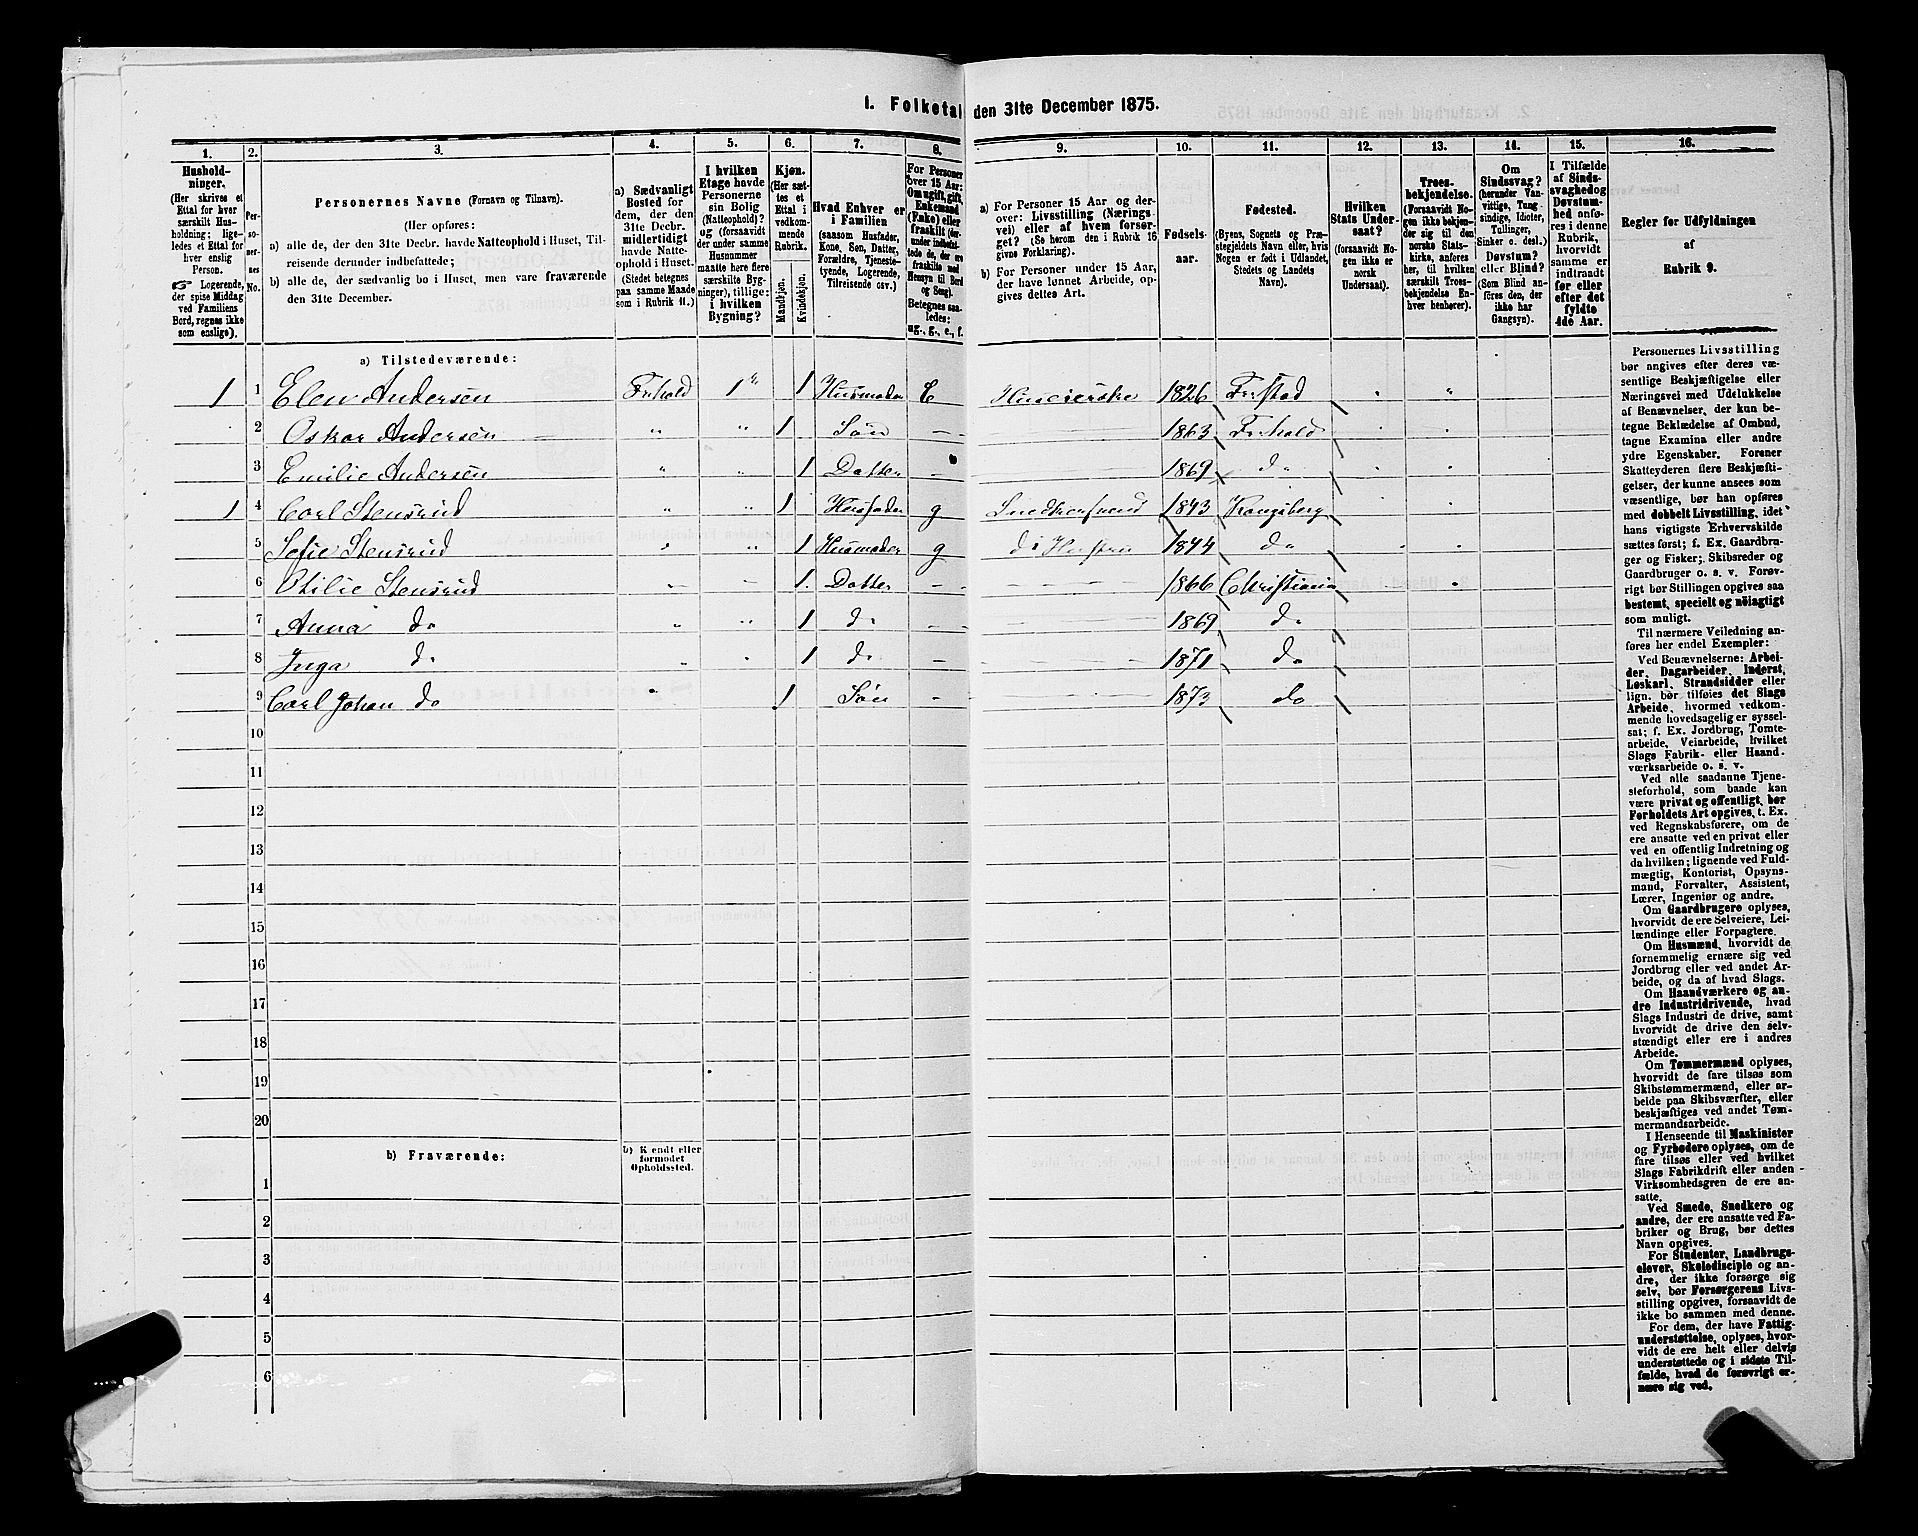 I. Folketal den 31te December 1875.
1. 2. 3. 4. 5. 6. 7. 8. 9. 10. 11. 12. 13. 14. 15. 16.
Hushold-
ninger.
(Her skrives et
Ettal for hver
særskilt Hus-
holdning; lige-
ledes et Ettal for
hver enslig
Person.
☞ Logerende,
der spise Middag
ved Familiens
Bord, regnes ikke
som enslige).
Per-
so-
ner-
nes
No.
Personernes Navne (Fornavn og Tilnavn).
(Her opføres:
a) alle de, der den 31te Decbr. havde Natteophold i Huset, Til-
reisende derunder indbefattede;
b) alle de, der sædvanlig bo i Huset, men vare fraværende
den 31te December.
a) Sædvanligt
Bosted for
dem, der den
31te Decbr.
midlertidigt
havde Natte-
ophold i Huset.
(Stedet betegnes
paa samme Maade
som i Rubrik 11.)
I hvilken
Etage havde
Personerne
sin Bolig
(Natteophold)?
og (forsaavidt
der under samme
Husnummer
maatte høre flere
særskilte Byg-
ninger), tillige:
i hvilken
Bygning?
Kjøn.
(Her sæt-
tes et
Ettal i
vedkom-
mende
Rubrik.
Mandkjøn.
Kvindekjøn.
Hvad Enhver er
i Familien
(saasom Husfader,
Kone, Søn, Datter,
Forældre, Tjeneste-
tyende, Logerende,
Tilreisende osv.)
For Personer
over 15 Aar:
Om ugift, gift,
Enkemand
(Enke) eller
fraskilt (der-
under indbefat-
tede de, der ere
fraskilte med
Hensyn til Bord
og Seng).
Betegnes saa-
ledes:
ug., g., e., f.
a) For Personer 15 Aar og der-
over: Livsstilling (Nærings-
vei) eller af hvem forsør-
get? (Se herom den i Rubrik 16
givne Forklaring).
b) For Personer under 15 Aar,
der have lønnet Arbeide, op-
gives dettes Art.
Fødsels-
aar.
Fødested.
(Byens, Sognets og Præ-
stegjeldets Navn eller, hvis
Nogen er født i Udlandet,
Stedets og Landets
Navn).
Hvilken
Stats Under-
saat?
(forsaavidt No-
gen ikke er
norsk
Undersaat).
Troes-
bekjendelse.
(Forsaavidt No-
gen ikke bekjen-
der sig til den
norske Stats-
kirke, anføres
her, til hvilken
særskilt Troes-
bekjendelse En-
hver henhører).
Om
Sindssvag?
(herunder Van-
vittige, Tung-
sindige, Idioter,
Tullinger,
Sinker o. desl.)
Døvstum?
eller Blind?
(Som Blind an-
føres den, der
ikke har
Gangsyn).
I Tilfælde
af Sinds-
svaghed og
Døvstum-
hed anfø-
res i denne
Rubrik,
hvorvidt
samme er
indtraadt
før eller
efter det
fyldte
4de Aar.
Regler for Udfyldningen
af
Rubrik 9.
a) Tilstedeværende:
1 1 Elen Andersen Frhald 1 1 Husmoder E Huseierske 1826 Frstad
2 Oskar Andersen 1 Søn 1863 Frhald
3 Emilie Andersen 1 Datter 1869 do
1 4 Carl Stensrud 1 Husfader g Snedkersvend 1843 Kongsberg
5 Sofie Stensrud 1 Husmoder g ds Hustru 1844 do
6 Otilie Stensrud 1 Datter 1866 Christiania
7 Anna do 1 do 1869 do
8 Inga do 1 do 1871 do
9 Carl Johan do 1 Søn 1873 do
10
11
12
13
14
15
16
17
18
19
20
b) Fraværende: b) Kjendt eller
formodet
Opholdssted.
1
2
3
4
5
6
Personernes Livsstilling
bør angives efter deres væ-
sentlige Beskjæftigelse eller
Næringsvei med Udelukkelse
af Benævnelser, der kun be-
tegne Beklædelse af Ombud,
tagne Examina eller andre
ydre Egenskaber. Forener
Skatteyderen flere Beskjæfti-
gelser, der kunne ansees som
væsentlige, bør han opføres
med dobbelt Livsstilling, idet
hans vigtigste Erhvervskilde
sættes først; f. Ex. Gaardbru-
ger og Fisker; Skibsreder og
Gaardbruger o. s. v. Forøv-
rigt bør Stillingen opgives saa
bestemt, specielt og nøiagtigt
som muligt.
Til nærmere Veiledning an-
føres her endel Exempler:
Ved Benævnelserne: Arbei-
der, Dagarbeider, Inderst,
Løskarl, Strandsidder eller
lign. bør tilføies det Slags
Arbeide, hvormed vedkom-
mende hovedsagelig er syssel-
sat; f. Ex. Jordbrug, Tomte-
arbeide, Veiarbeide, hvilket
Slags Fabrik- eller Haand-
værksarbeide o. s. v.
Ved alle saadanne Tjene-
steforhold, som baade kan
være privat og offentligt, bør
Forholdets Art opgives, t. Ex.
ved Regnskabsførere, om de
ere ansatte ved en privat eller
ved en offentlig Indretning og
da hvilken; lignende ved Fuld-
mægtig, Kontorist, Opsyns-
mand, Forvalter, Assistent,
Lærer, Ingeniør og andre.
Om Gaardbrugere oplyses,
hvorvidt de ere Selveiere, Lei-
lændinge eller Forpagtere.
Om Husmænd, hvorvidt de
fornemmelig ernære sig ved
Jordbrug eller ved andet Ar-
beide, og da af hvad Slags.
Om Haandværkere og an-
dre Industridrivende, hvad
Slags Industri de drive, samt
hvorvidt de drive den selv-
stændigt eller ere i andres
Arbeide.
Om Tømmermænd oplyses,
hvorvidt de fare tilsøs som
Skibstømmermænd, eller ar-
beide paa Skibsværfter, eller
beskjæftiges ved andet Tøm-
mermandsarbeide.
I Henseende til Maskinister
og Fyrbødere oplyses, om de
fare tilsøs eller ved hvilket
Slags Fabrikdrift eller anden
Virksomhedsgren de ere an-
satte.
Ved Smede, Snedkere og
andre, der ere ansatte ved Fa-
briker og Brug, bør dettes
Navn opgives.
For Studenter, Landbrugs-
elever, Skoledisciple og an-
dre, der ikke forsørge sig
selv, bør Forsørgerens Livs-
stilling opgives, forsaavidt de
ikke bo sammen med denne.
For dem, der have Fattig-
understøttelse, oplyses, hvor-
vidt de ere helt eller delvis
understøttede og i sidste Til-
fælde, hvad de forøvrigt er-
nære sig ved.